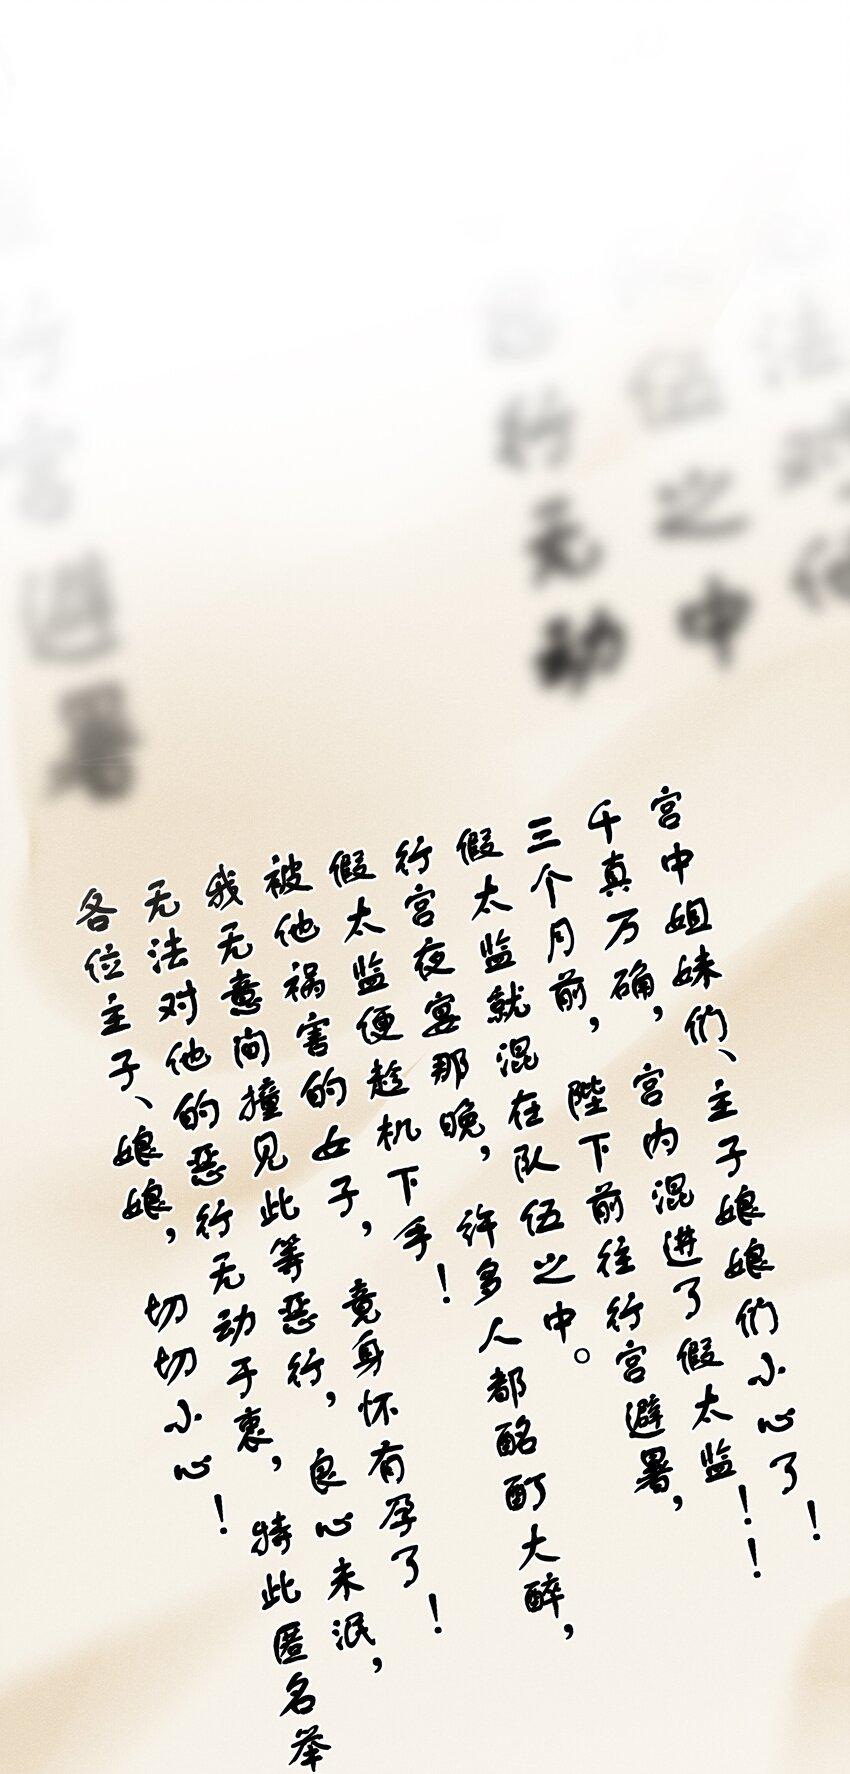 宫中姐妹们、主子娘娘们小心了！
千真万确，宫内混进了假太监！！
三个月前，陛下前往行宫避暑，
假太监就混在队伍之中。
行宫夜宴那晚，许多人都酩酊大醉，
假太监便趁机下手！
被他祸害的女子，竟身怀有孕了！
我无意间撞见此等恶行，良心未泯，
无法对他的恶行无动于衷，特此匿名举
各位主子、娘娘，切切小心！
法
对他
伍之中
行无动
行宫避暑